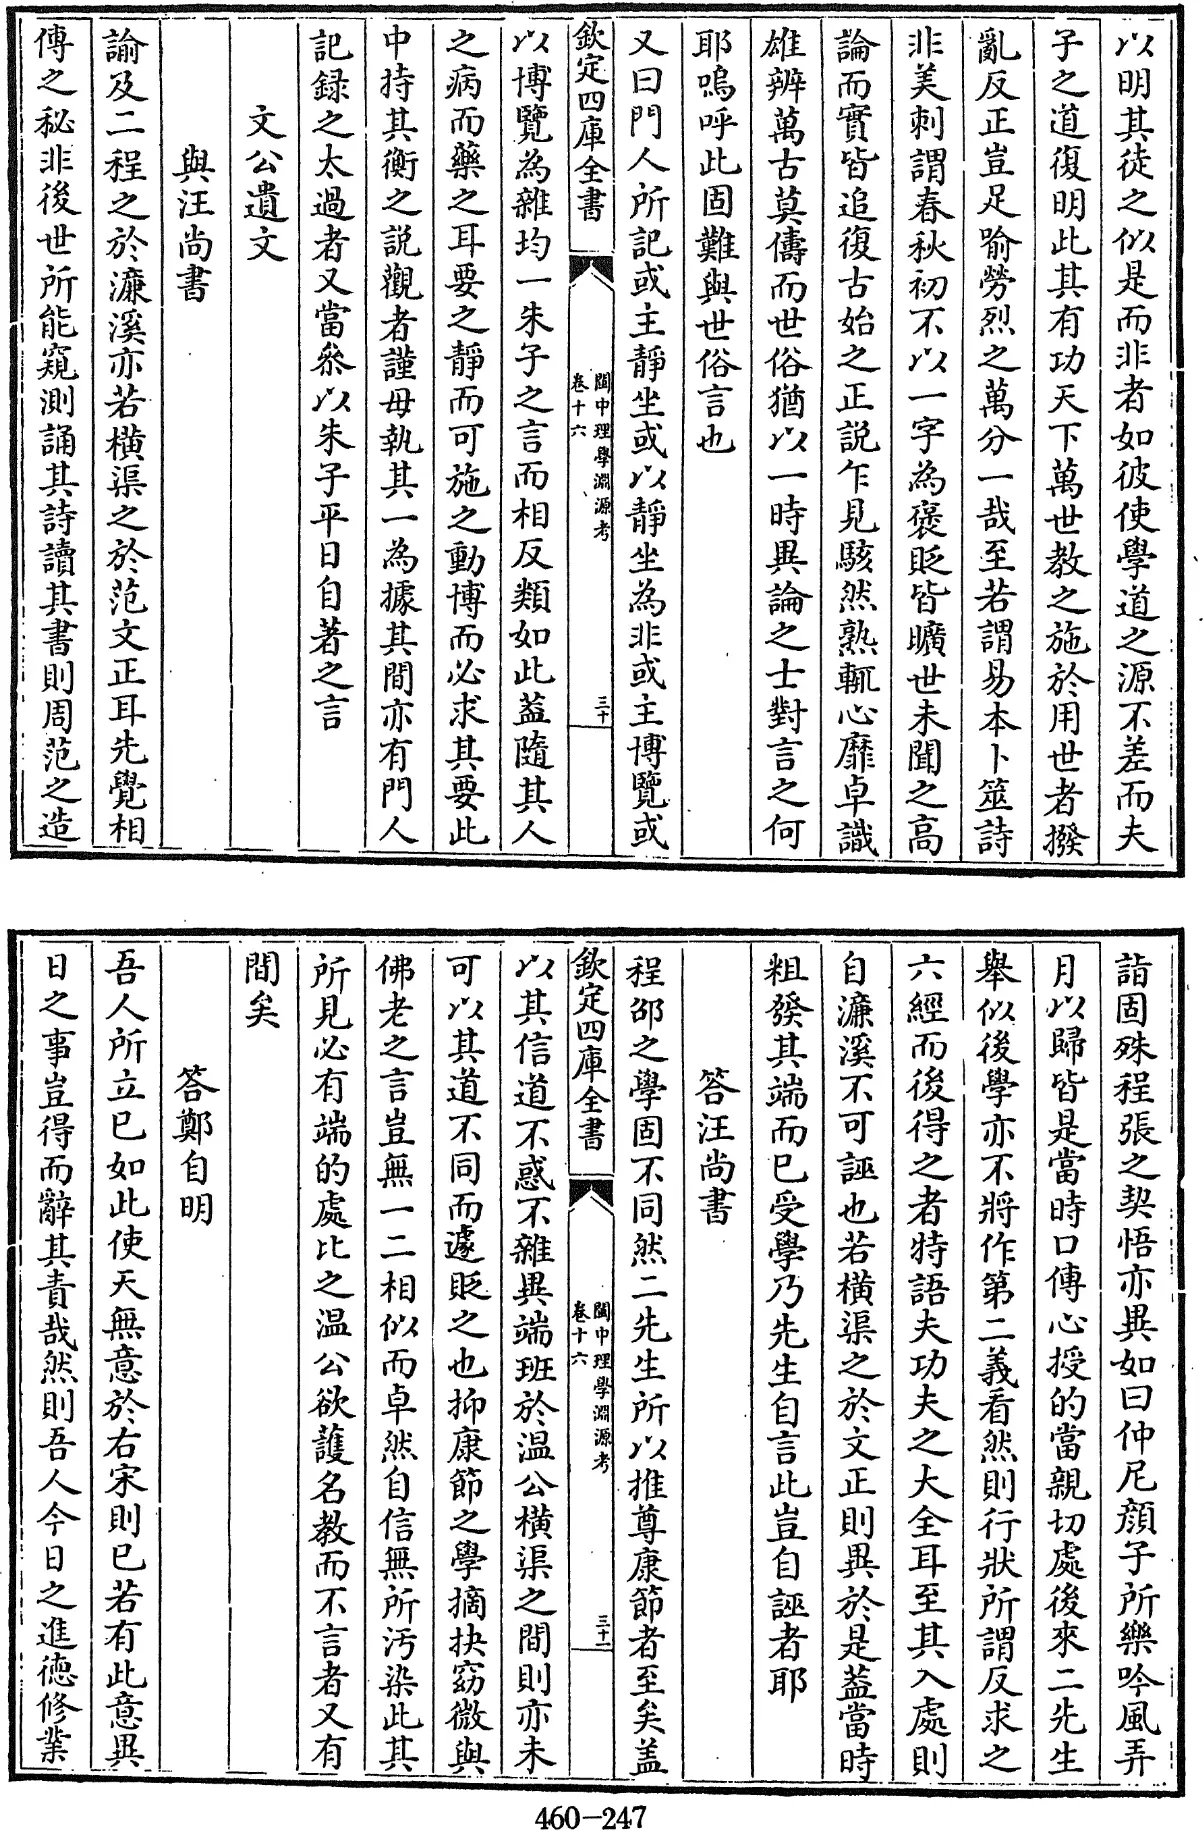 以明其徒之似是而非者如彼使學道之源不差而夫
子之道復明此其有功天下萬世教之施於用世者撥
亂反正豈足喻勞烈之萬分一哉至若謂易本卜筮詩
非美刺謂春秋初不以一字為褒貶皆曠世未聞之高
論而實皆追復古始之正説乍見駭然熟輒心靡卓識
雄辨萬古莫儔而世俗猶以一時異論之士對言之何
耶嗚呼此固難與世俗言也
又曰門人所記或主靜坐或以靜坐為非或主博覽或
欽定四庫全書
閩中理學淵源考
卷十六
三十
以博覽為雜均一朱子之言而相反類如此葢隨其人
之病而藥之耳要之靜而可施之動博而必求其要此
中持其衡之説觀者謹毋執其一為據其間亦有門人
記録之太過者又當叅以朱子平日自著之言
文公遺文
與汪尚書
諭及二程之於濂溪亦若橫渠之於范文正耳先覺相
傳之秘非後世所能窺測誦其詩讀其書則周范之造
詣固殊程張之契悟亦異如曰仲尼顔子所樂吟風弄
月以歸皆是當時口傳心授的當親切處後來二先生
舉似後學亦不將作第二義看然則行狀所謂反求之
六經而後得之者特語夫功夫之大全耳至其入處則
自濂溪不可誣也若橫渠之於文正則異於是葢當時
粗發其端而已受學乃先生自言此豈自誣者耶
答汪尚書
程邵之學固不同然二先生所以推尊康節者至矣盖
欽定四庫全書
閩中理學淵源考
卷十六
三十一
以其信道不惑不雜異端班於温公橫渠之間則亦未
可以其道不同而遽貶之也抑康節之學摘抉窈微與
佛老之言豈無一二相似而卓然自信無所污染此其
所見必有端的處比之温公欲䕶名教而不言者又有
間矣
答鄭自明
吾人所立已如此使天無意於右宋則已若有此意異
日之事豈得而辭其責哉然則吾人今日之進德修業
460-247